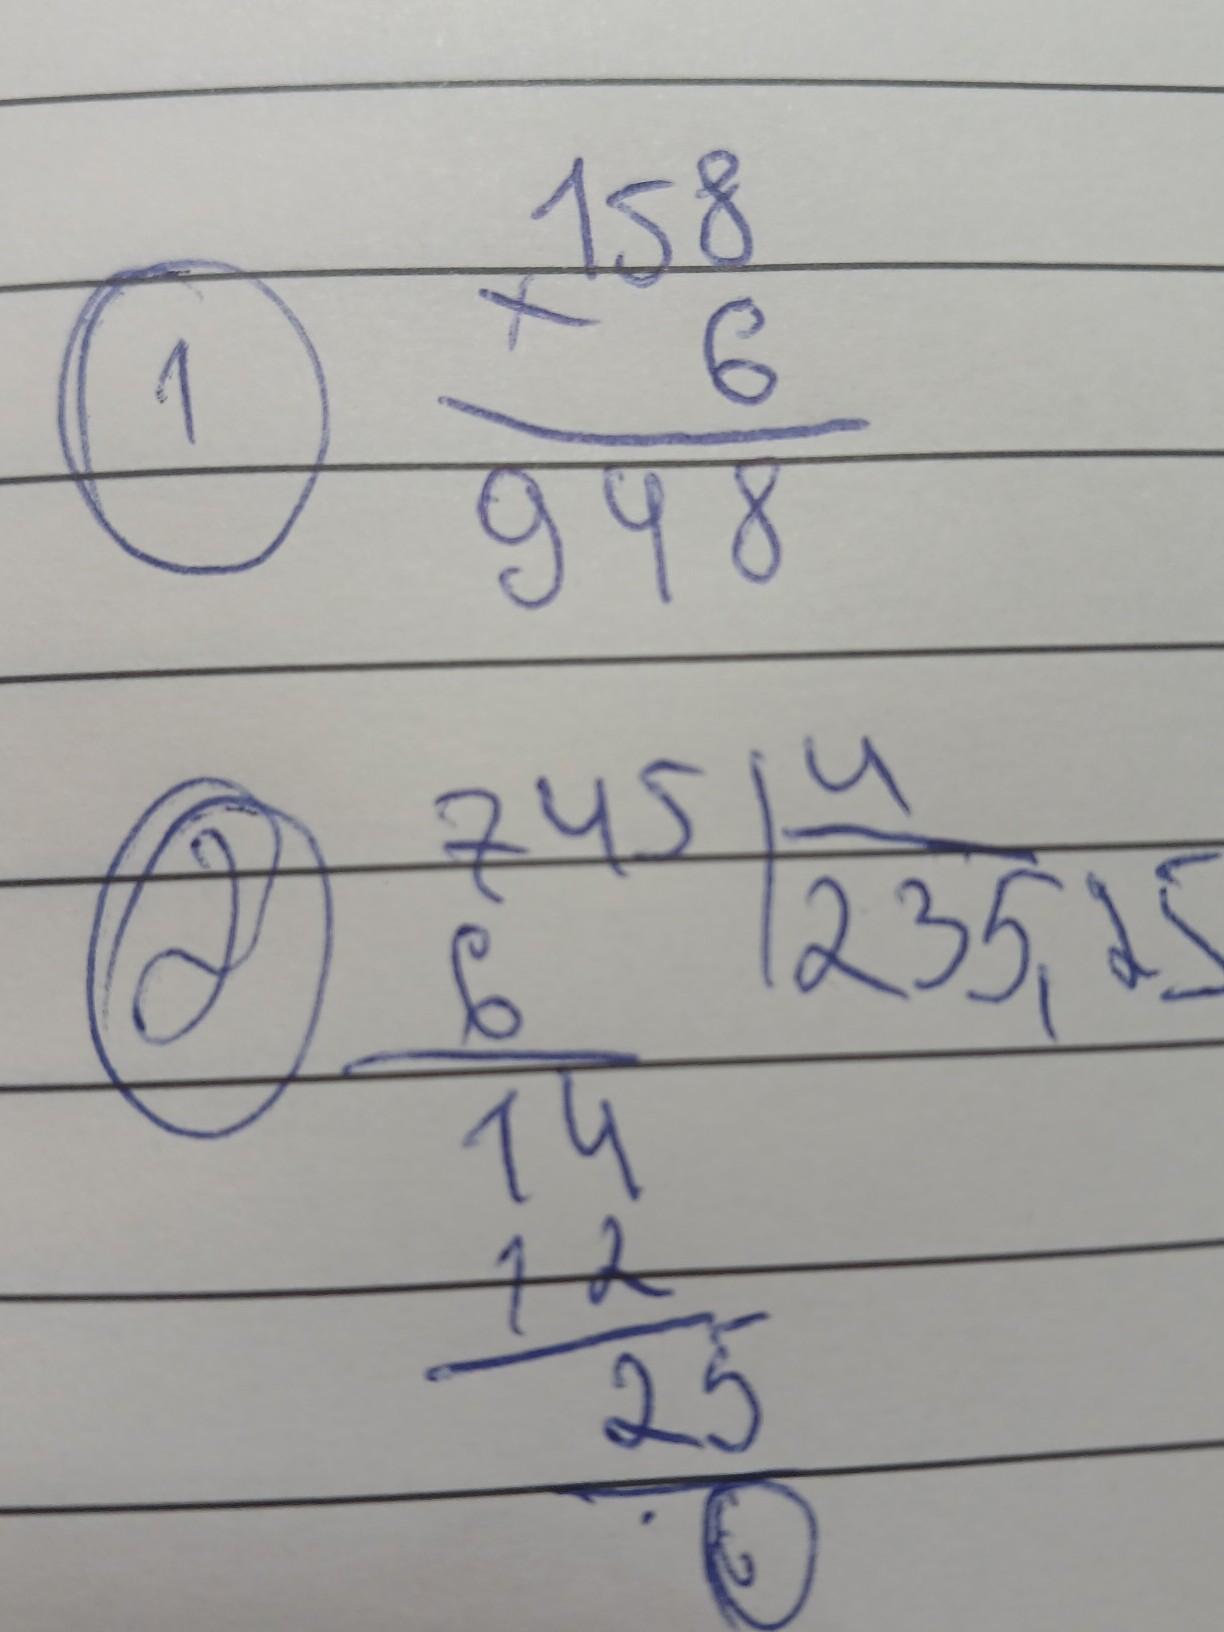 158
1 × 6
948
2 745 4
235,25
6
14
12
25